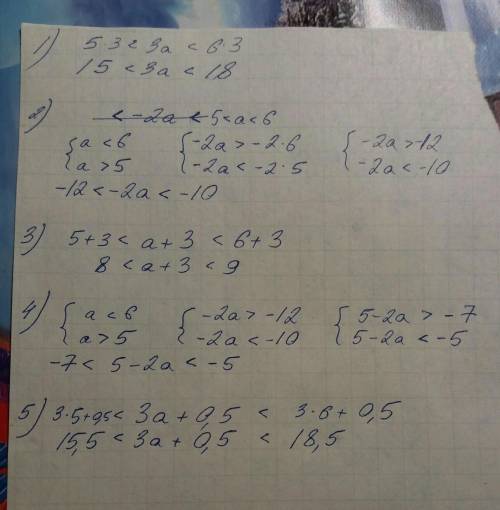 1) 5·3 < 3a < 6·3
15 < 3a < 18
2) < -2a < 5 < a < 6
{a < 6 {-2a > -2·6 {-2a > -12
{a > 5 {-2a < -2·5 {-2a < -10
-12 < -2a < -10
3) 5+3 < a+3 < 6+3
8 < a+3 < 9
4) {a < 6 {-2a > -12 {5-2a > -7
{a > 5 {-2a < -10 {5-2a < -5
-7 < 5-2a < -5
5) 3·5+0,5 < 3a + 0,5 < 3·6 + 0,5
15,5 < 3a + 0,5 < 18,5